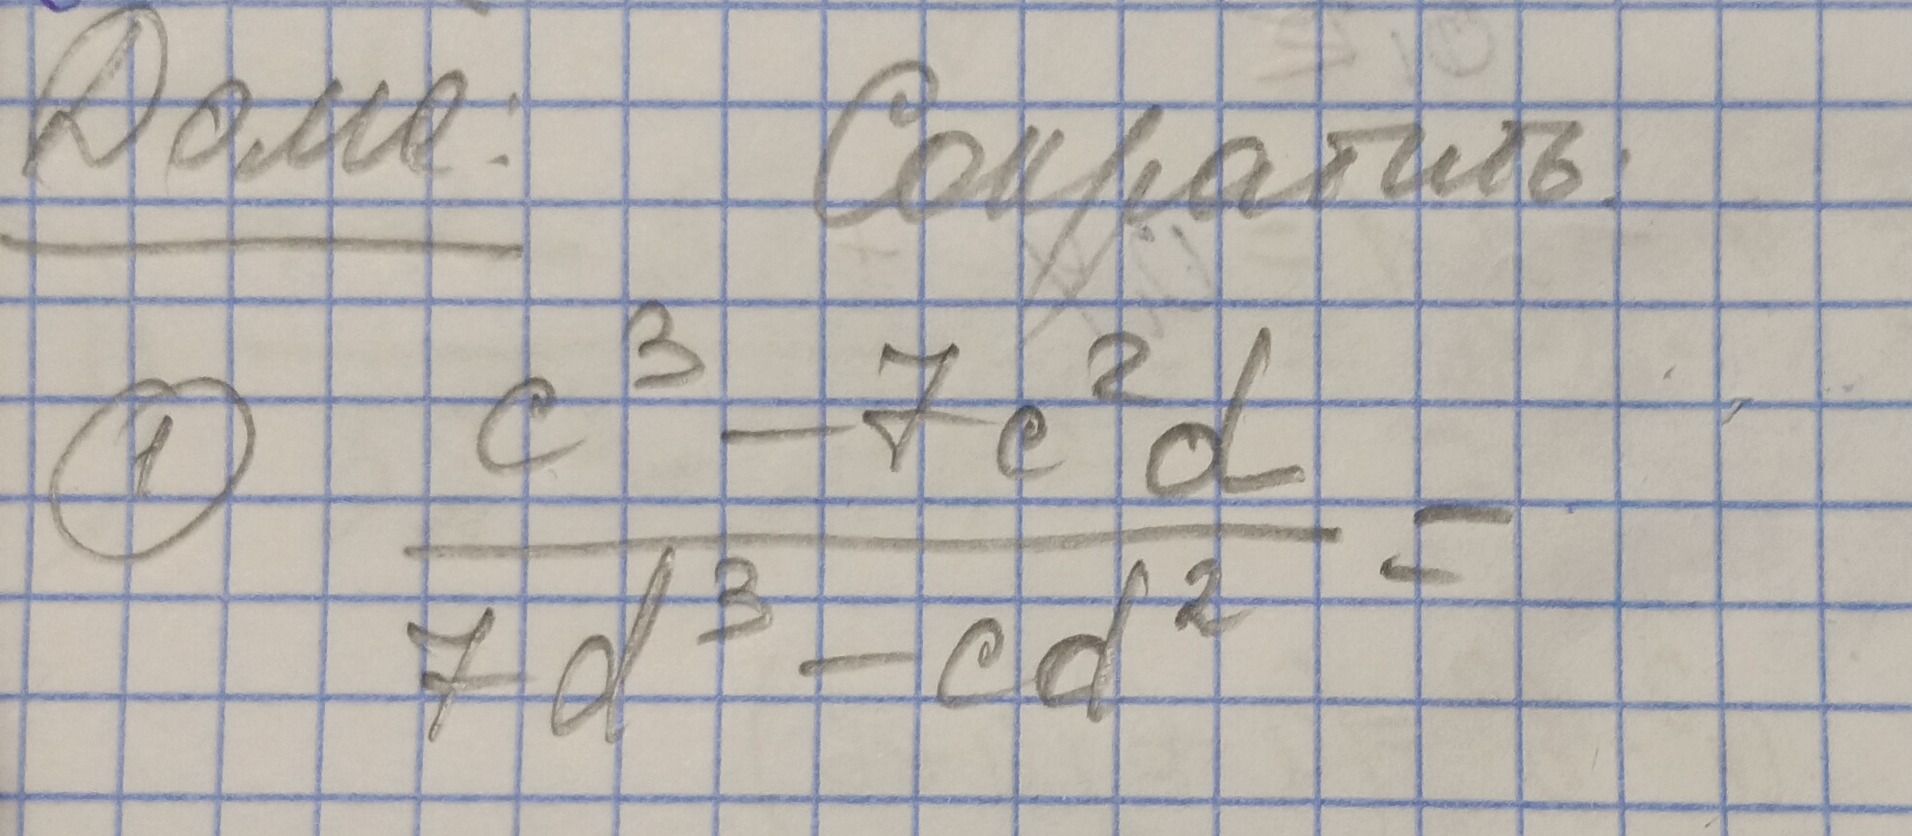 Дома: Сократить:
① c³ - 7c²d / 7d³ - cd² =